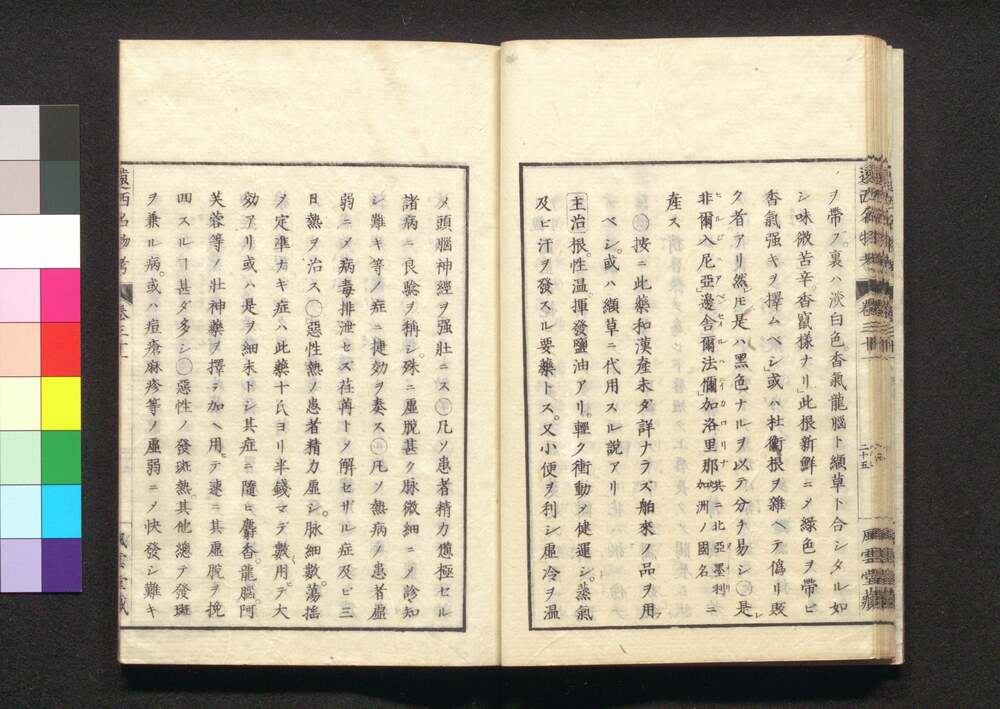 ヲ帶ブ。裏ハ淡白色。香氣龍腦ト纈草ト合シタル如
シ味微苦辛。香竄樣ナリ」此根新鮮ニ〆綠色ヲ帶ビ
香氣强キヲ擇ムベシ」或ハ杜衡根ヲ雜ヘテ僞リ販
ク者アリ然𪜈是ハ黑色ナルヲ以テ分チ易シ○是レ
非爾入尼亞」邊舎爾法儞」加洛里那共ニ北亞墨利加洲ノ國名ニ
産ス
按ニ此藥和漢産未ダ詳ナラズ舶來ノ品ヲ用
ベシ。或ハ纈草ニ代用スル說アリ
主治 根。性温。揮發鹽油アリ。輕ク衝動〆健運シ。蒸氣
及ビ汗ヲ發スル要藥トス。又小便ヲ利シ虛冷ヲ温
遠西名物考 卷三十
二十五
風雲堂藏
〆頭腦神經ヲ强壯ニス○凡ソ患者精力憊極セル
諸病ニ良驗ヲ稱シ。殊ニ虛脫甚ク脉微細ニ〆診知
シ難キ等ノ症ニ捷効ヲ奏ス○凡ソ熱病ノ患者虛
弱ニ〆病毒排泄セズ荏苒トノ解セザル症及ビ三
日熱ヲ治ス○惡性熱ノ患者精力虛シ。脉細數。蕩搖
〆定準ナキ症ハ此藥十氏ヨリ半錢マデ數用。テ大
効アリ或ハ是ヲ細末トシ其症ニ隨ヒ麝香。龍腦阿
芙蓉等ノ壯神藥ヲ擇テ加ヘ用。テ速ニ其虛脫ヲ挽
回スルヿ甚ダ多シ○惡性ノ發斑熱。其他總テ發斑
ヲ兼ル病。或ハ痘瘡麻疹等ノ虛弱ニ〆快發シ難キ
遠西名物考 卷三十